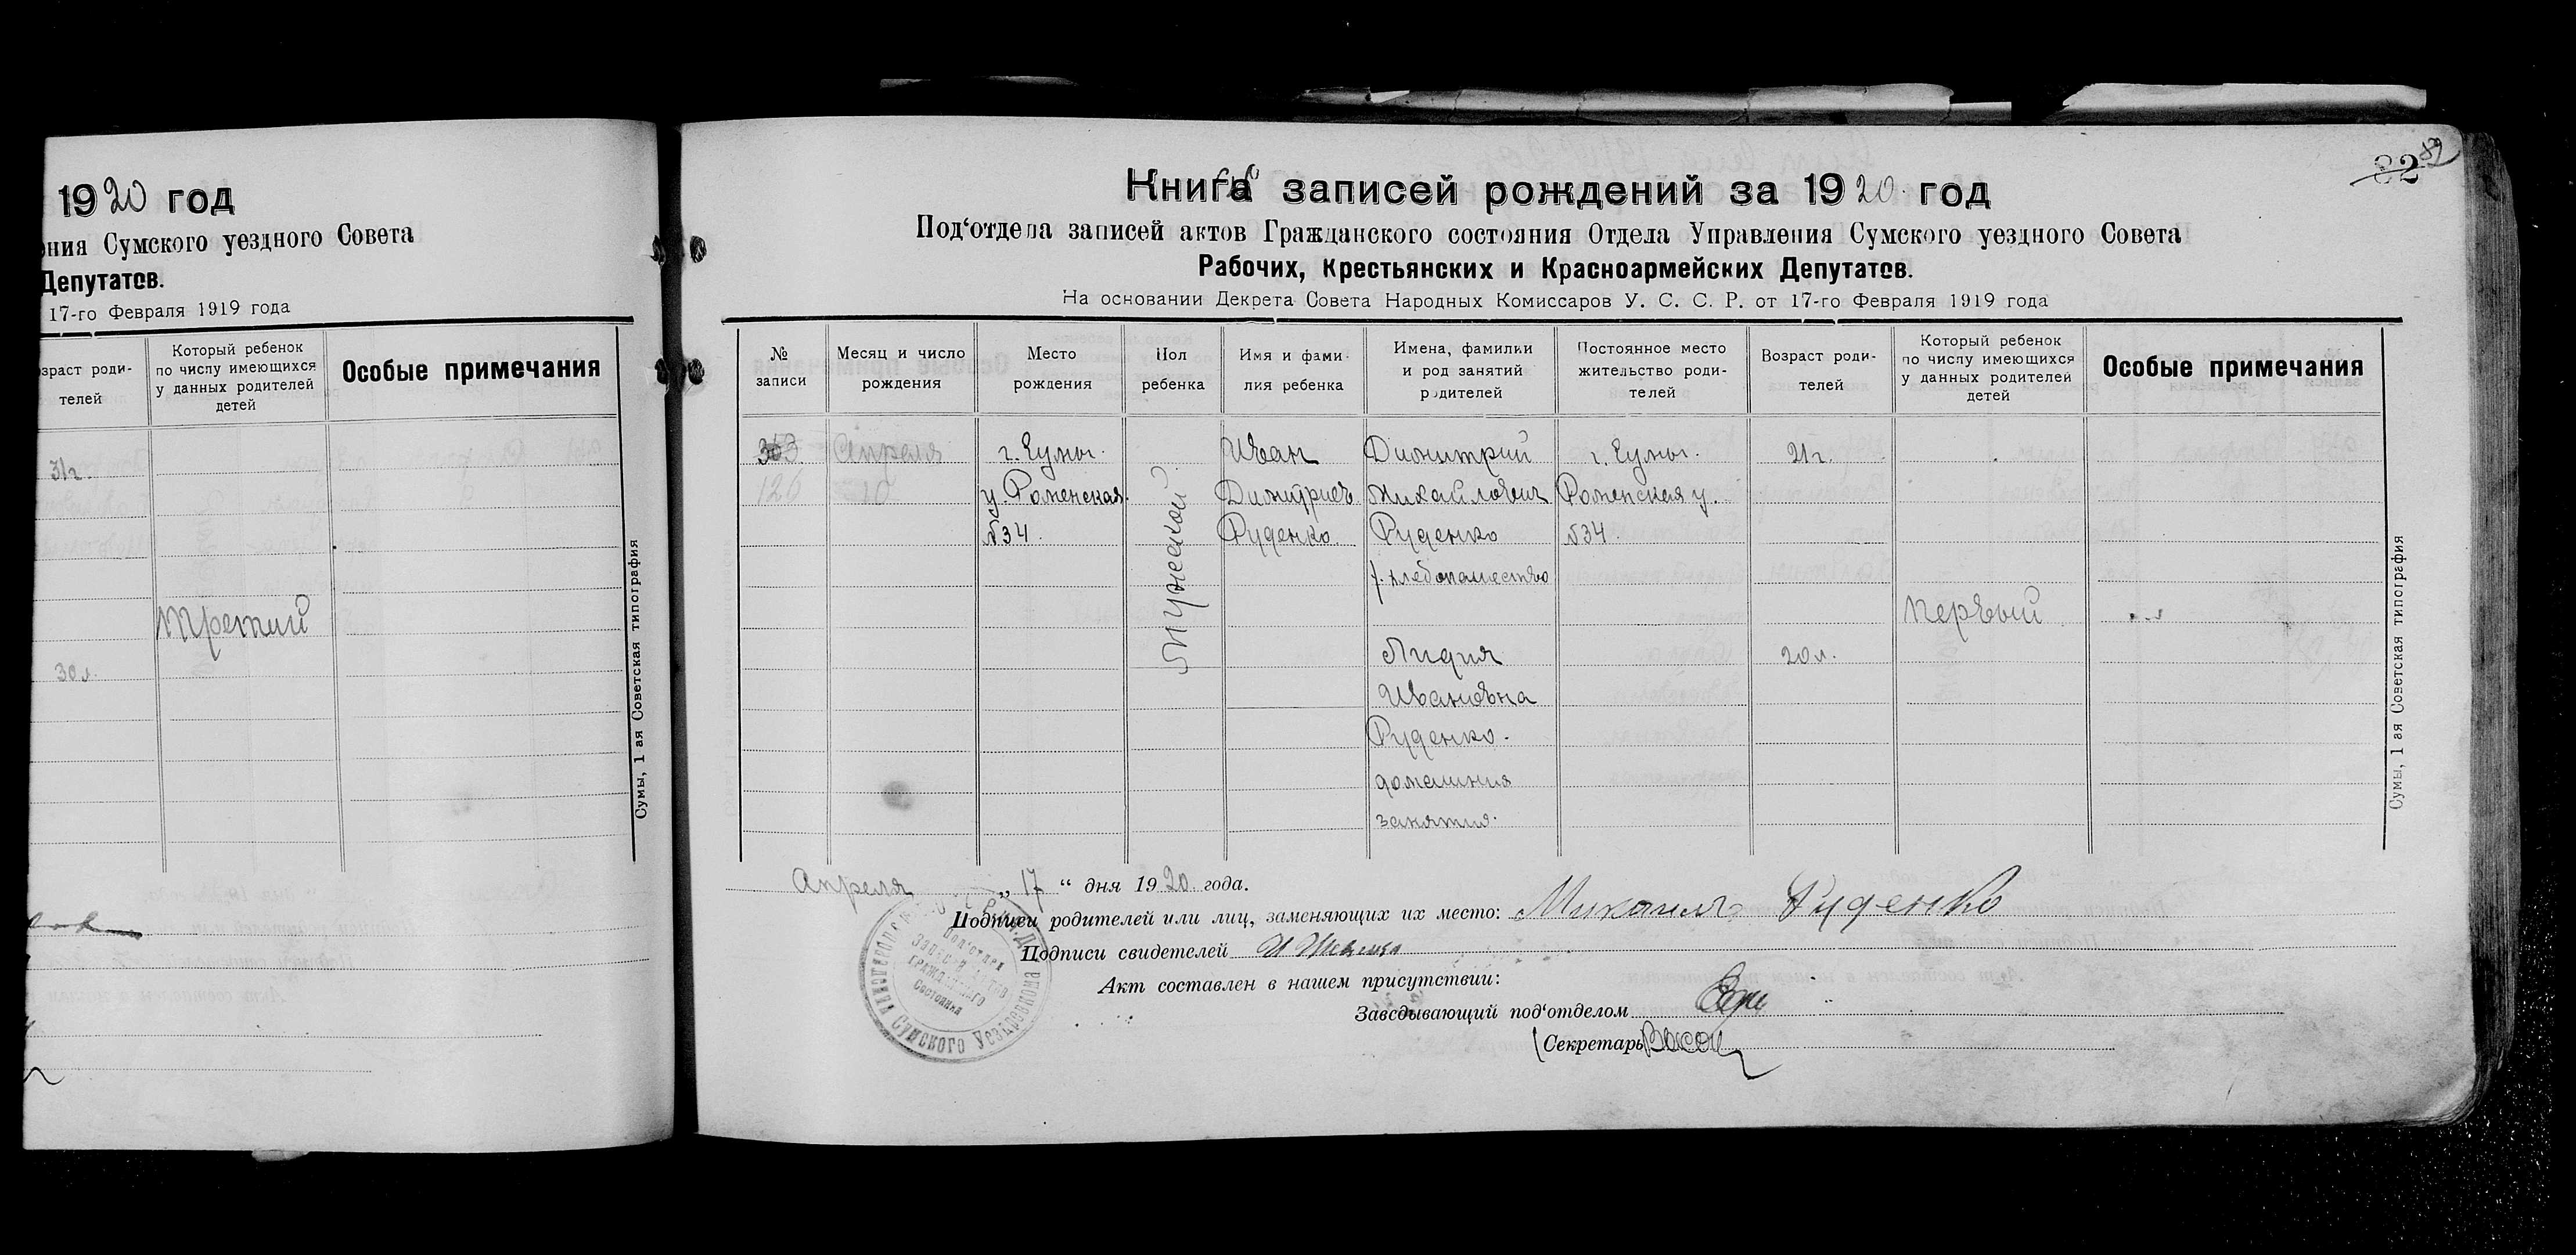 1920 год
ения Сумского уездного Совета
Депутатов.
17-го Февраля 1919 года
зраст роди-
телей
Который ребенок
по числу имеющихся
у данных родителей
детей
Особые примечания
31г.
Третий
30л.
Сумы, 1 ая Советская типография
82
Книга записей рождений за 1920 год
Под‘отдела записей актов Гражданского состояния Отдела Управления Сумского уездного Совета
Рабочих, Крестьянских и Красноармейских Депутатов.
На основании Декрета Совета Народных Комиссаров У. С. С. Р. от 17-го Февраля 1919 года
№
записи
Месяц и число
рождения
Место
рождения
Пол
ребенка
Имя и фами-
лия ребенка
Имена, фамилии
и род занятий
родителей
Постоянное место
жительство роди-
телей
Возраст роди-
телей
Который ребенок
по числу имеющихся
у данных родителей
детей
Особые примечания
126
Апреля
10
г. Сумы.
у. Роменская
№34.
Мужеской
Иван
Димитриев
Руденко.
Димитрий
Михайлович
Руденко
хлебопашество
Лидия
Ивановна
Руденко.
домашния
занятия.
г. Сумы.
Роменская у.
№34.
21г.
20л.
первый
Сумы, 1 ая Советская типография
Апреля „17“ дня 1920 года.
Подписи родителей или лиц, заменяющих их место: Михаил Руденко
Подписи свидетелей
Акт составлен в нашем присутствии:
Заведывающий под‘отделом
Секретарь
Под‘отдел
Записей Актов
Гражданского
Состояния
Сумского